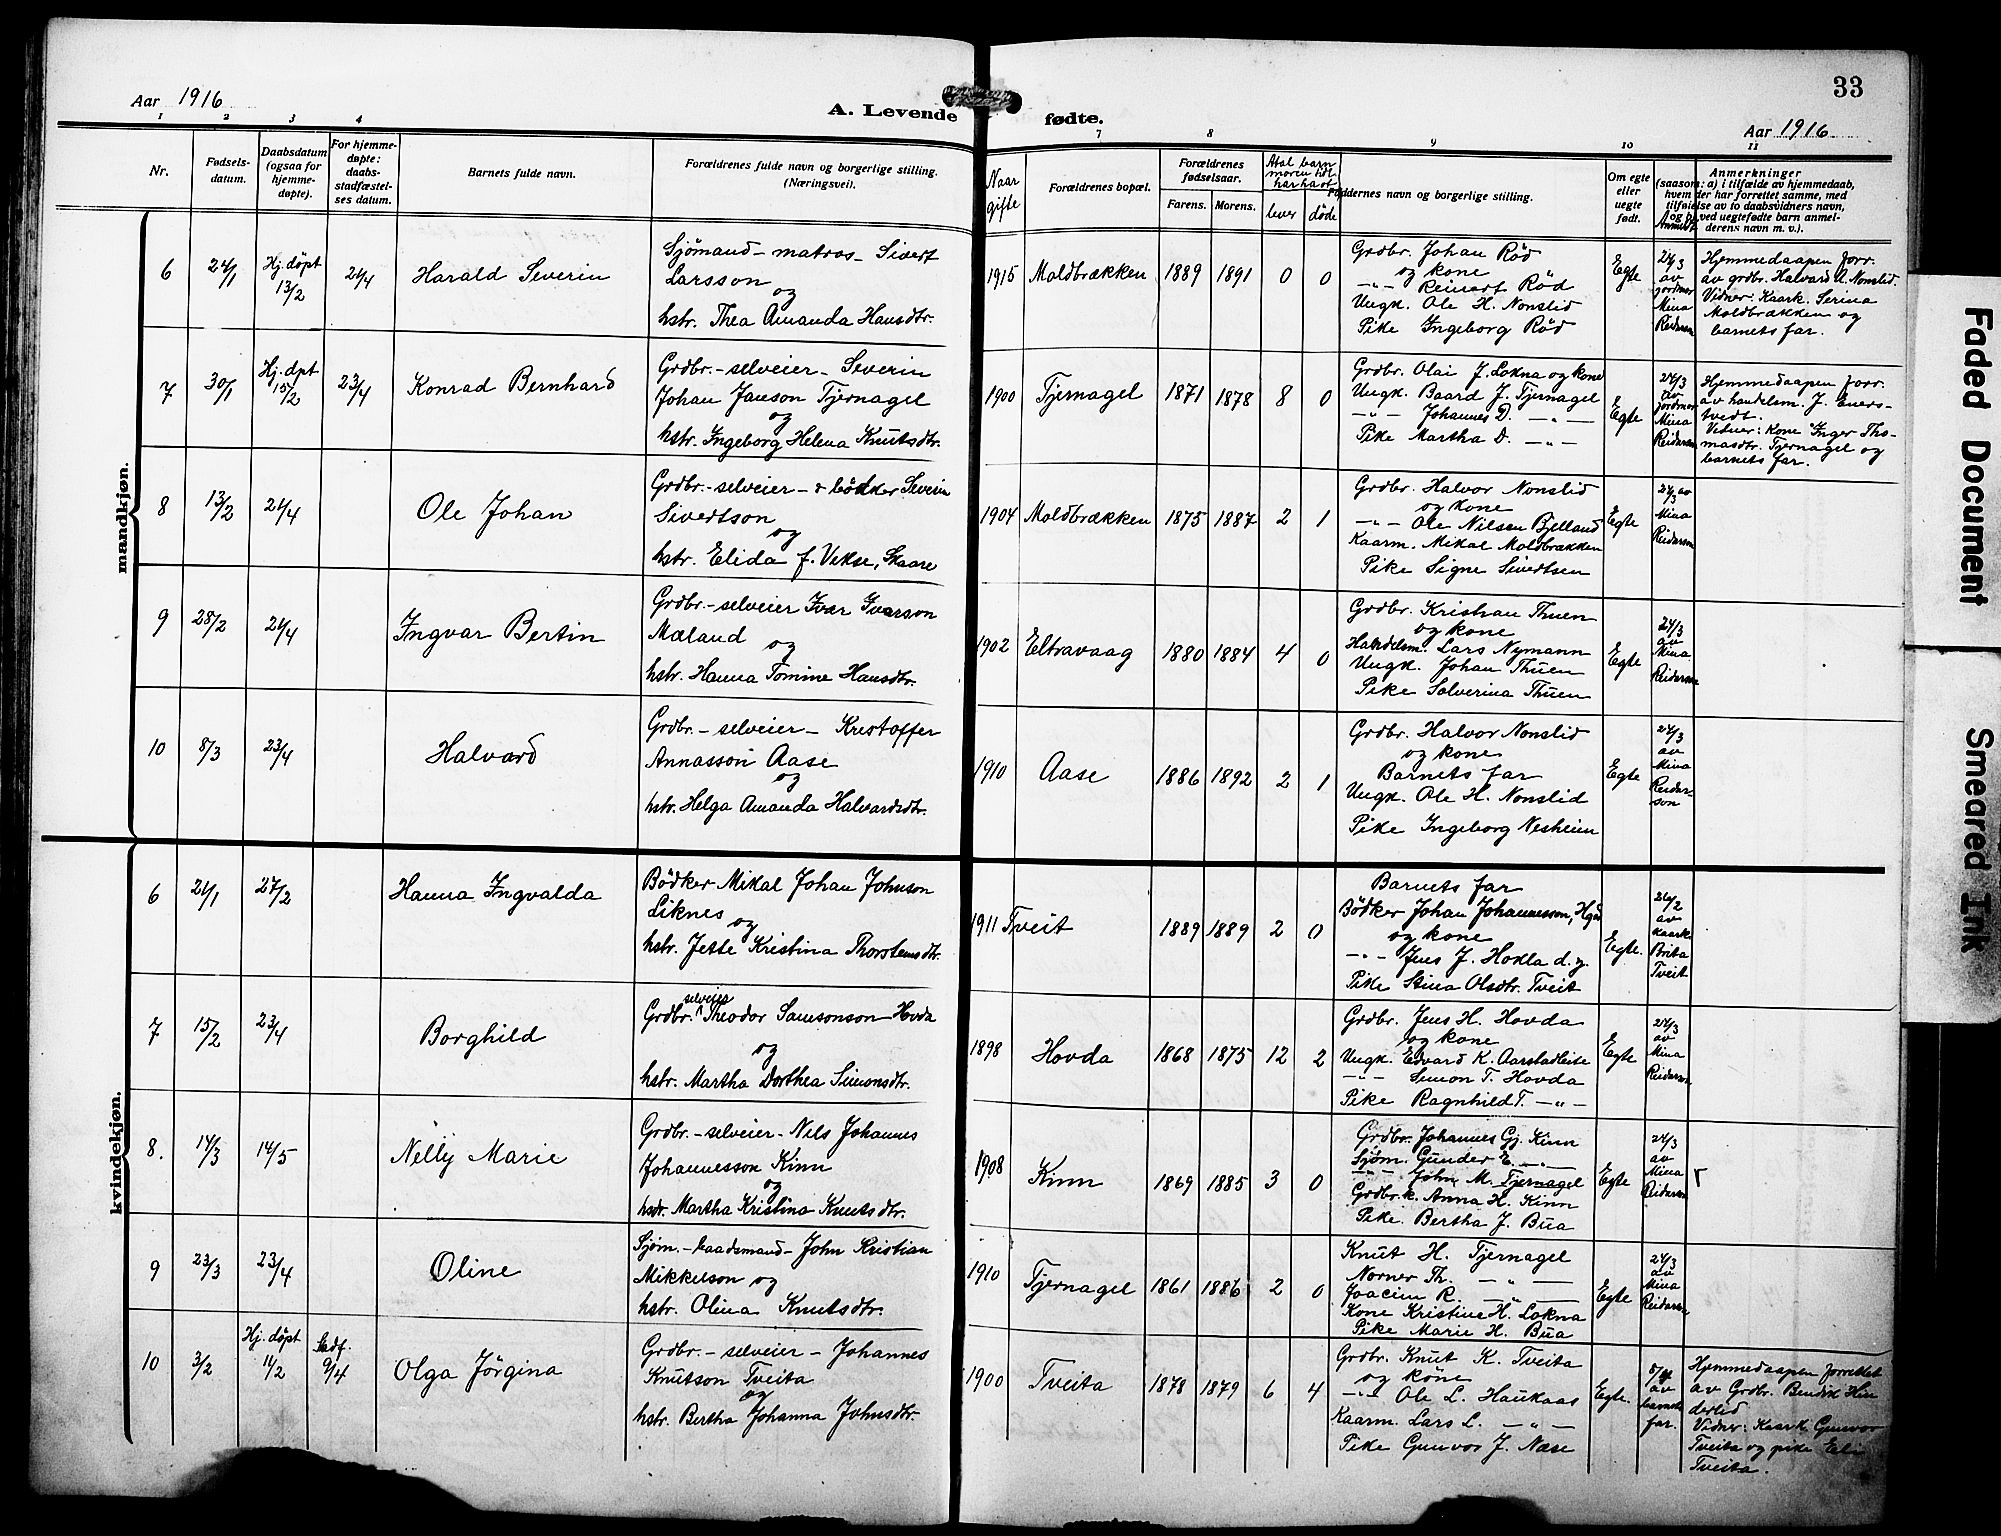 33
Aar 1916
A. Levende fødte.
Aar 1916
1 2 3 4 7 8 9 10 11
Nr.
Fødsels-
datum.
Daabsdatum
(ogsaa for
hjemme-
døpte).
For hjemme-
døpte:
daabs-
stadfæstel-
ses datum.
Barnets fulde navn.
Forældrenes fulde navn og borgerlige stilling.
(Næringsvei).
Naar
gifte
Forældrenes bopæl.
Forældrenes
fødselsaar.
Farens. Morens.
Atal barn
moren har havt
lever døde
Faddernes navn og borgerlige stilling.
Om egte
eller
uegte
født.
Anmeldt
Anmerkninger
(saasom: a) i tilfælde av hjemmedaab,
hvem der har forrettet samme, med
tilføielse av to daabsvidners navn,
og b) ved uegtefødte barn anmel-
derens navn m. v.).
mandkjøn.
6
24/1
Hj. døpt
13/2
24/4
Harald Severin
Sjömand - matros - Sivert
Larsson
og
hstr. Thea Amanda Hansdtr.
1915
Moldbrækken
1889
1891
0
0
Grdbr. Johan Rød
og kone
-"- Reinert Rød
Ungk. Ole H. Nonslid
Pike Ingeborg Rød
Egte
24/3
av
jordmor
Mina
Reidarson
Hjemmedaapen forr.
av grdbr. Halvard A. Nonslid.
Vidner: Kaark. Serina
Moldbrækken og
barnets far.
7
30/1
Hj. dpt
15/2
23/4
Konrad Bernhard
Grdbr. - selveier - Severin
Johan Janson Tjernagel
og
hstr. Ingeborg Helena Knutsdtr.
1900
Tjernagel
1871
1878
8
0
Grdbr. Olai J. Lokna og kone
Ungk. Baard J. Tjernagel
-"- Johannes D. -"-
Pike Martha D. -"-
Egte
24/3
av
jordmor
Mina
Reidarson
Hjemmedaapen forr.
av handelsm. J. Evers-
tvedt.
Vidner: Kone Inger Tho-
masdtr. Tjernagel og
barnets far.
8
13/2
24/4
Ole Johan
Grdbr. - selveier - & bödker Severin
Sivertson
og
hstr. Elida f. Vekse, Skaare
1904
Moldbrækken
1875
1887
2
1
Grdbr. Halvor Nonslid
og kone
-"- Ole Nilsen Bjelland
Kaarm. Mikal Moldbrækken
Pike Signe Sivertsen
Egte
24/3 av
Mina
Reidarson
9
28/2
24/4
Ingvar Bertin
Grdbr. - selveier Ivar Ivarson
Mæland
og
hstr. Hanna Tomine Hansdtr.
1902
Eltravaag
1880
1884
4
0
Grdbr. Kristian Thuen
og kone
Handelsm. Lars Nymann
Ungk. Johan Thuen
Pike Solverina Thuen
Egte
24/3
av
Mina
Reidarson
10
8/3
23/4
Halvard
Grdbr. - selveier - Kristoffer
Annasson Aase
og
hstr. Helga Amanda Halvardsdtr.
1910
Aase
1886
1892
2
1
Grdbr. Halvor Nonslid
og kone
Barnets far
Ungk. Ole H. Nonslid
Pike Ingeborg Nesheim
Egte
24/3
av
Mina
Reidar-
son
kvindekjøn.
6
21/1
27/2
Hanna Ingvalda
Bödker Mikal Johan Johnson
Liknes
og
hstr. Jette Kristina Thorstensdtr.
1911
Tveit
1889
1889
2
0
Barnets far
Bödker Johan Johannesson, Hgsd
og kone
-"- Jens J. Hokla d. y.
Pike Stina Olsdtr. Tveit
Egte.
26/2
av
Kaark.
Brita
Tveit
7
15/2
23/4
Borghild
selveier
Grdbr. Theodor Samsonson Hovda
og
hstr. Martha Dorthea Simonsdtr.
1898
Hovda
1868
1875
12
2
Grdbr. Jens H. Hovda
og kone
Ungk. Edvard K. Aarstadleite
-"- Simon T. Hovda
Pike Ragnhild T. -"-
Egte
24/3
av
Mina
Reidarson
8.
14/3
14/5
Nelly Marie
Grdbr. - selveier - Nils Johannes
Johannesson Kinn
og
hstr. Martha Kristina Knutsdtr.
1908
Kinn
1869
1885
3
0
Grdbr. Johannes Gj. Kinn
Sjøm. Gunder E. -"-
-"- John M. Tjernagel
Grdbr.k. Anna H. Kinn
Pike. Bertha J. Bua
Egte
24/3
av
Mina
Reidarson
9
23/3
23/4
Oline
Sjøm. - baadsmand - John Kristian
Mikkelson og
hstr. Olina Knutsdtr.
1910
Tjernagel
1861
1886
2
0
Knut H. Tjernagel
Norner Th. -"-
Joacim R. -"-
Kone Kristine H. Lokna
Pike Marie H. Bua
Egte
24/3
av
Mina
Reidarson
10
3/2
Hj. døpt
11/2
Stadf.
9/4
Olga Jörgina
Grdbr. - selveier - Johannes
Knutson Tveita
og
hstr. Bertha Johanna Johnsdtr.
1900
Tveita
1878
1879
6
4
Grdbr. Knut K. Tveita
og kone
-"- Ole L. Haukaas
Kaarm. Lars L. -"-
Pike Gunvor J. Næse
Egte.
5/4
av
barnets
far.
Hjemmedaapen forrettet
av Grdbr. Bendik Hin
derlid
Vidner: Kaark. Gunvor
Tveita og pike Elin
Tveita.
Faded Document
Smeared Ink